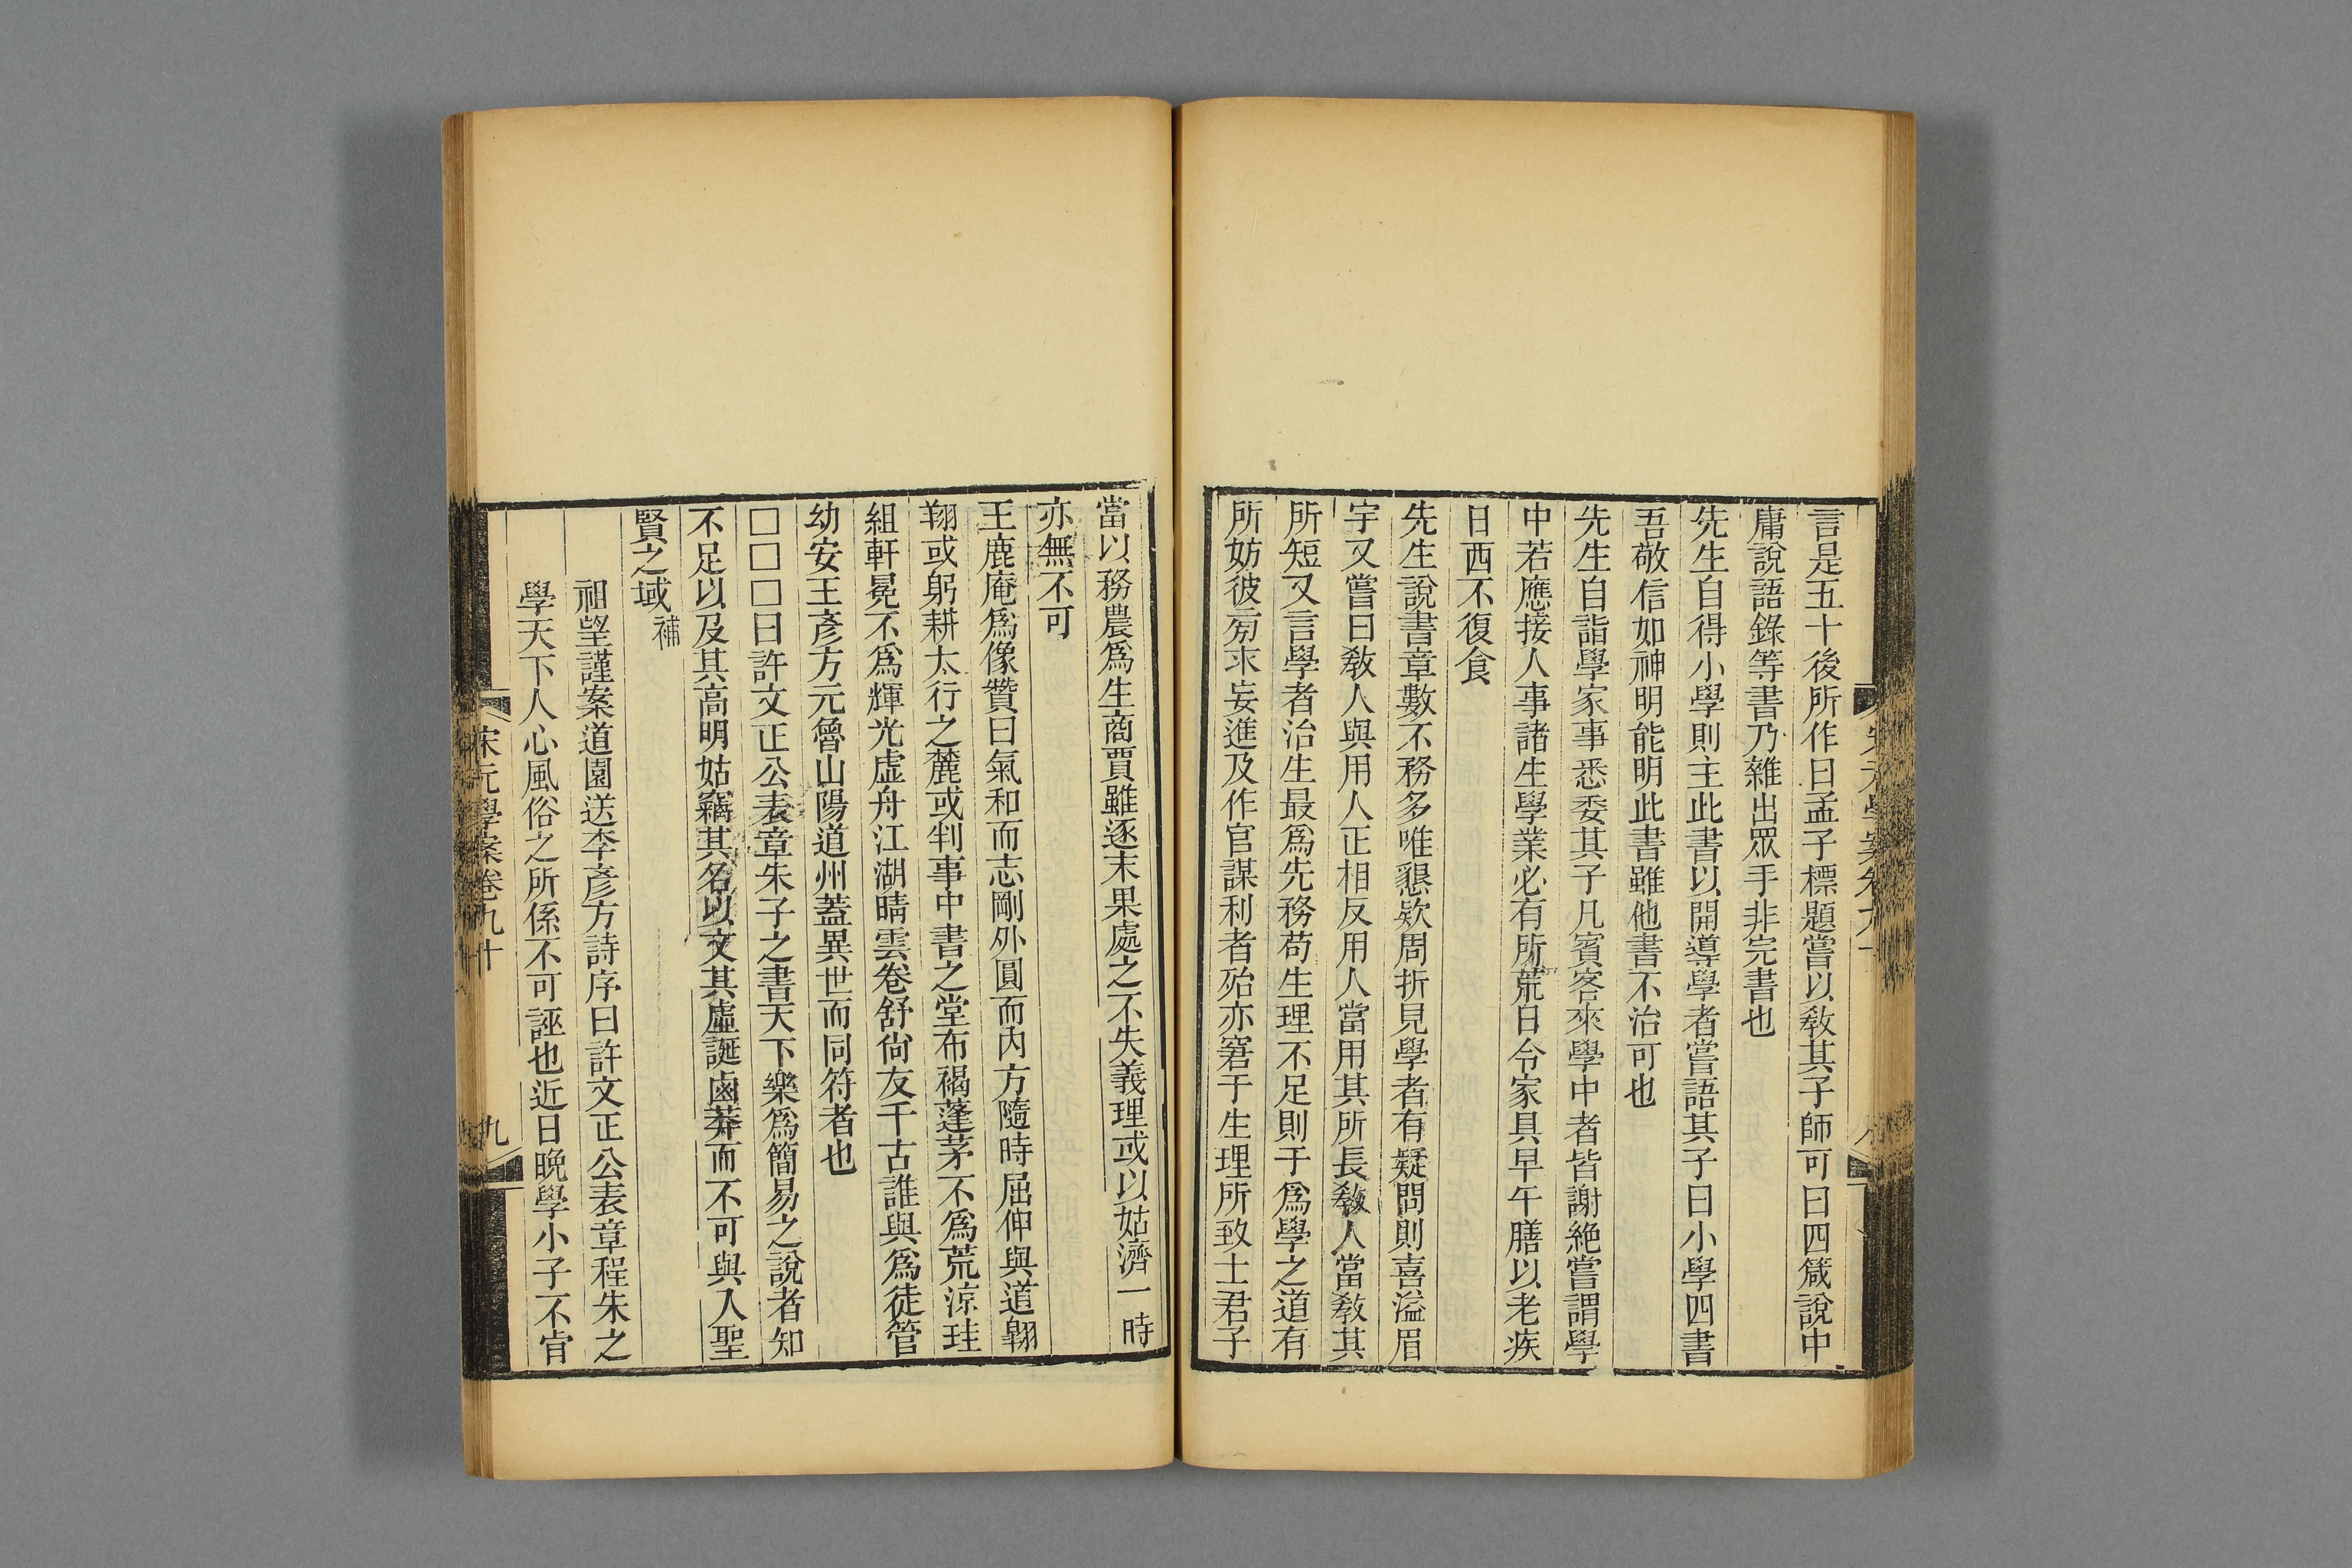 言是五十後所作曰孟子標題嘗以敎其子師可曰四箴說中
庸說語錄等書乃雜出眾手非完書也
先生自得小學則主此書以開導學者嘗語其子曰小學四書
吾敬信如神明能明此書雖他書不治可也
先生自詣學家事悉委其子凡賓客來學中者皆謝絶嘗謂學
中若應接人事諸生學業必有所荒日令家具早午膳以老疾
日西不復食
先生說書章數不務多唯懇款周折見學者有疑問則喜溢眉
宇又嘗曰敎人與用人正相反用人當用其所長敎人當敎其
所短又言學者治生最爲先務苟生理不足則于爲學之道有
所妨彼旁求妄進及作官謀利者殆亦窘于生理所致士君子
當以務農爲生商賈雖逐末果處之不失義理或以姑濟一時
亦無不可
王鹿庵爲像贊曰氣和而志剛外圓而内方隨時屈伸與道翱
翔或躬耕太行之麓或判事中書之堂布褐蓬茅不爲荒涼珪
組軒冕不爲輝光虛舟江湖晴雲卷舒尙友千古誰與爲徒管
幼安王彥方元魯山陽道州蓋異世而同符者也
□□□曰許文正公表章朱子之書天下樂爲簡易之說者知
不足以及其高明姑竊其名以文其虛誕鹵莽而不可與入聖
賢之域補
祖望謹案道園送李彥方詩序曰許文正公表章程朱之
學天下人心風俗之所係不可誣也近日晚學小子不肯
宋元學案卷九十
九